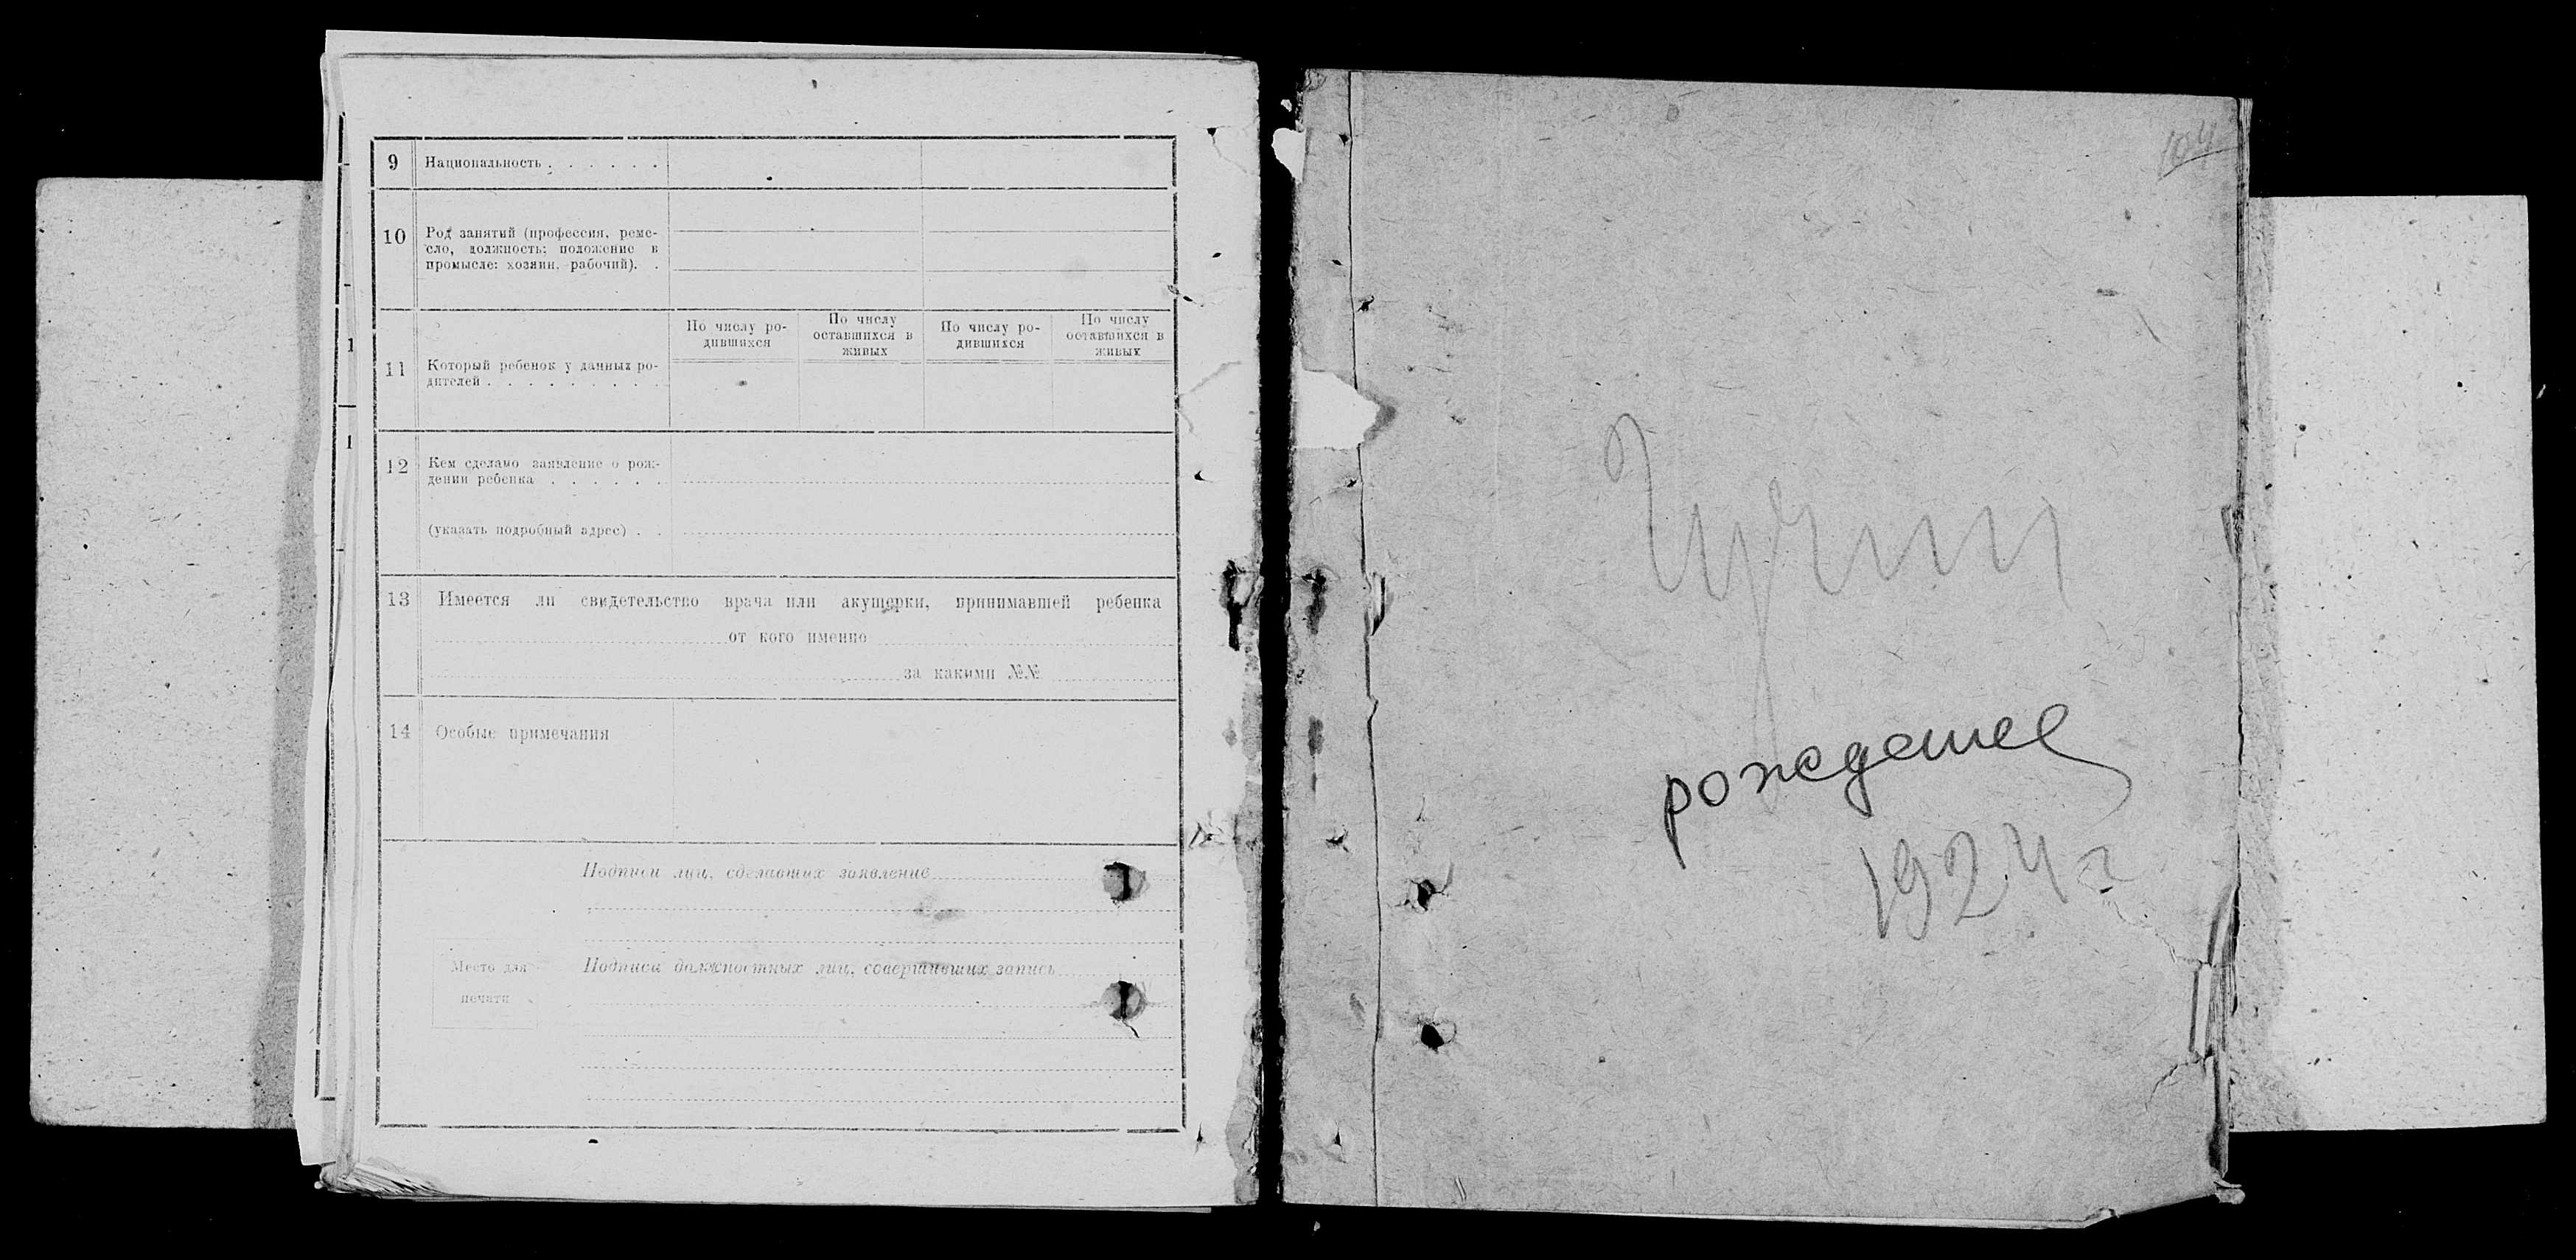 9 Национальность . . . . . .
10 Род занятий (профессия, реме-
сло, должность; положение в
промысле: хозяин, рабочий). .
11 Который ребенок у данных ро-
дителей . . . . . . . . .
По числу ро-
дившихся
По числу
оставшихся в
живых
По числу ро-
дившихся
По числу
оставшихся в
живых
12 Кем сделано заявление о рож-
дении ребенка . . . . . .
(указать подробный адрес) . .
13 Имеется ли свидетельство врача или акушерки, принимавшей ребенка
от кого именно
за какими №№
14 Особые примечания
Подписи лиц, сделавших заявление
Место для
печати
Подписи должностных лиц, совершивших запись
1
1
104
рождение
1924 г